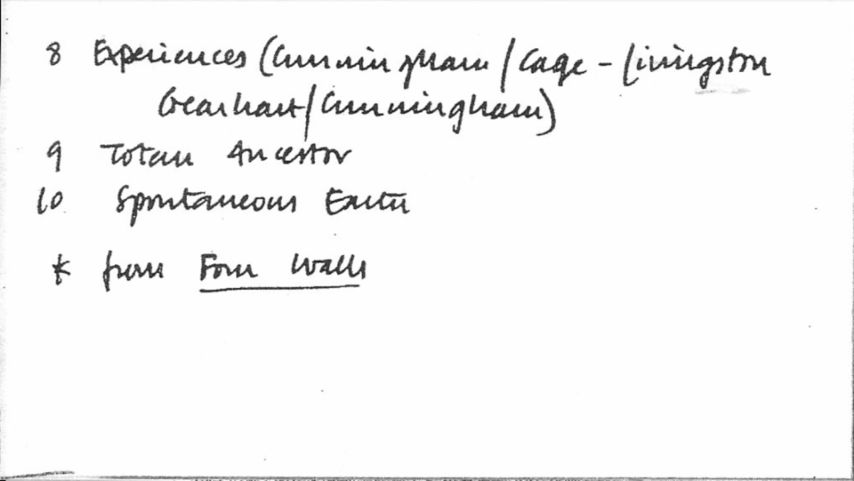 8 Experiences (Cunningham/Cage - Livingston
Gearhart/Cunningham)
9 Totem Ancestor
10 Spontaneous Earth
* from Four Walls